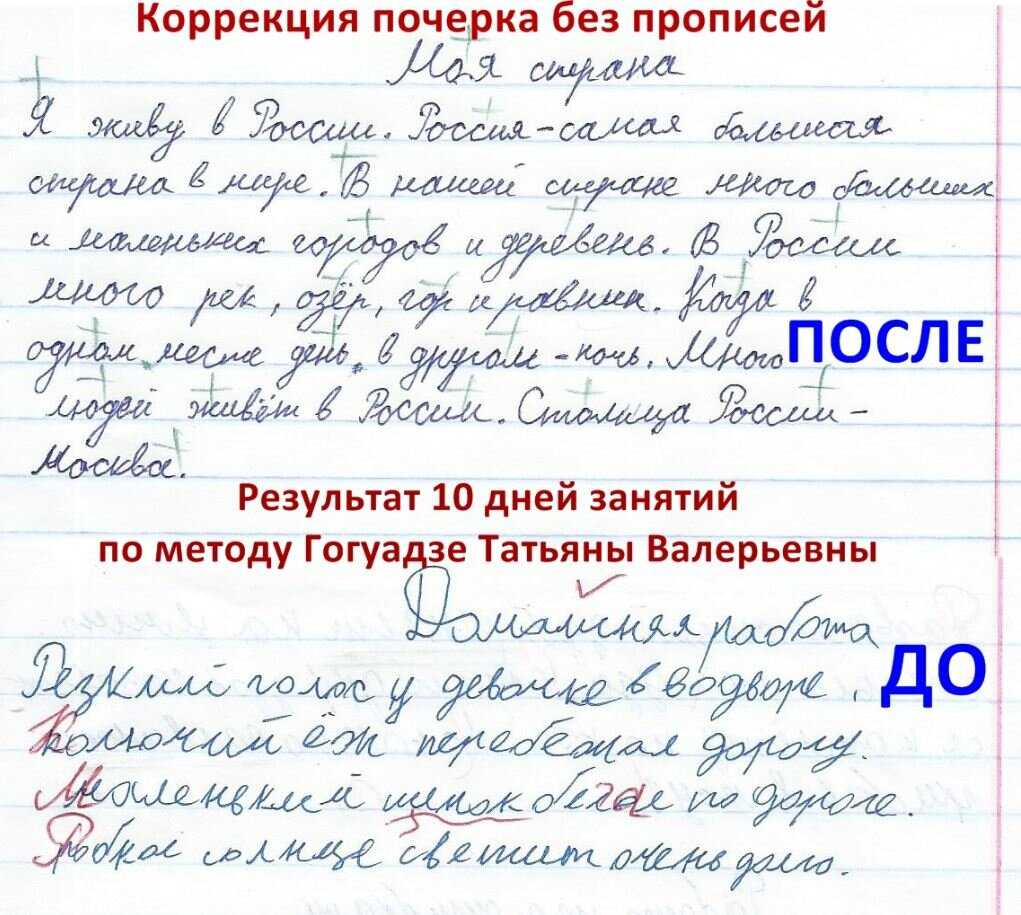 Коррекция почерка без прописей
Моя страна
Я живу в России. Россия-самая большая
страна в мире. В нашей стране много больших
и маленьких городов и деревень. В России
много рек, озёр, гор и равнин. Когда в
одном месте день, в другом - ночь. Много
ПОСЛЕ
людей живёт в России. Столица России-
Москва.
Результат 10 дней занятий
по методу Гогуадзе Татьяны Валерьевны
Домашняя работа
Резкий голос у девочке в водворе.
ДО
Колючий ёж перебежал дорогу.
Маленький щенок бегае по дороге.
Робкое солнце светит очень долго.